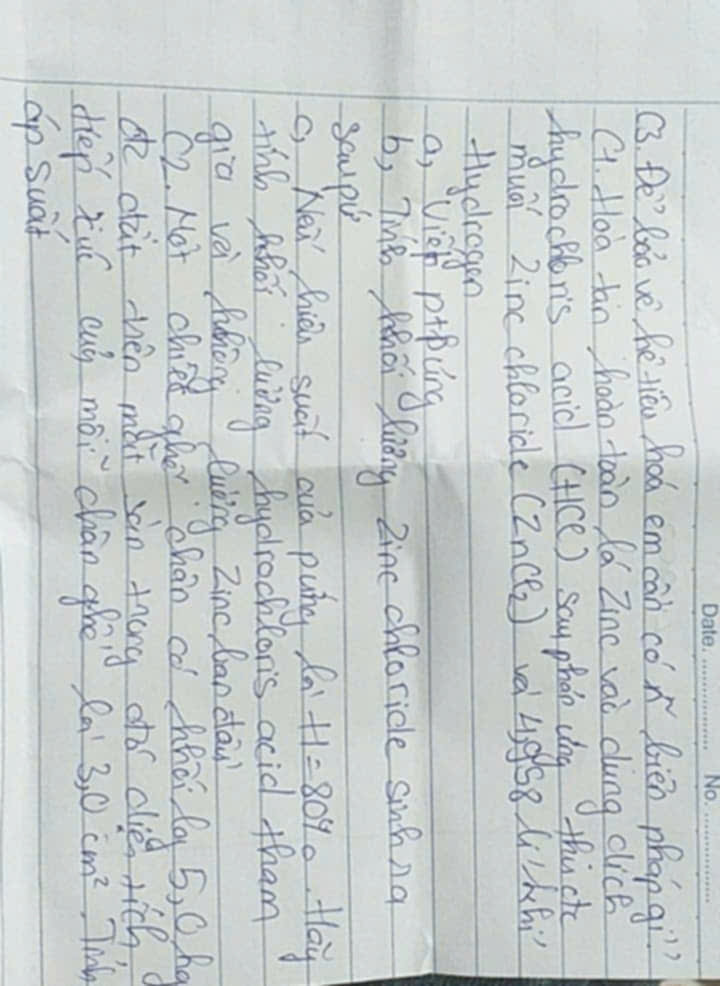 Date. ............ No. ............
C3. Để bảo vệ hệ tiêu hoá em cần có n~ biện pháp gì??
C1. Hoà tan hoàn toàn lá Zinc vào dung dịch
hydrochloris acid (HCl) sau phản ứng thu đc
muối Zinc chloride (ZnCl2) và 4,958 lít khí
Hydrogen
a, Viết ptpứng
b, Tính khối lượng Zinc chloride sinh ra
sau pứ
c, Nếu hiệu suất của pứng là H=80%. Hãy
tính khối lượng hydrochloris acid tham
gia và khối lượng Zinc ban đầu
C2. Một chiếc ghế chân có khối lg 5,0 kg
đc đặt trên mặt sàn trong đó diện tích
tiếp xúc của mỗi chân ghế là 3,0 cm². Tính
áp suất